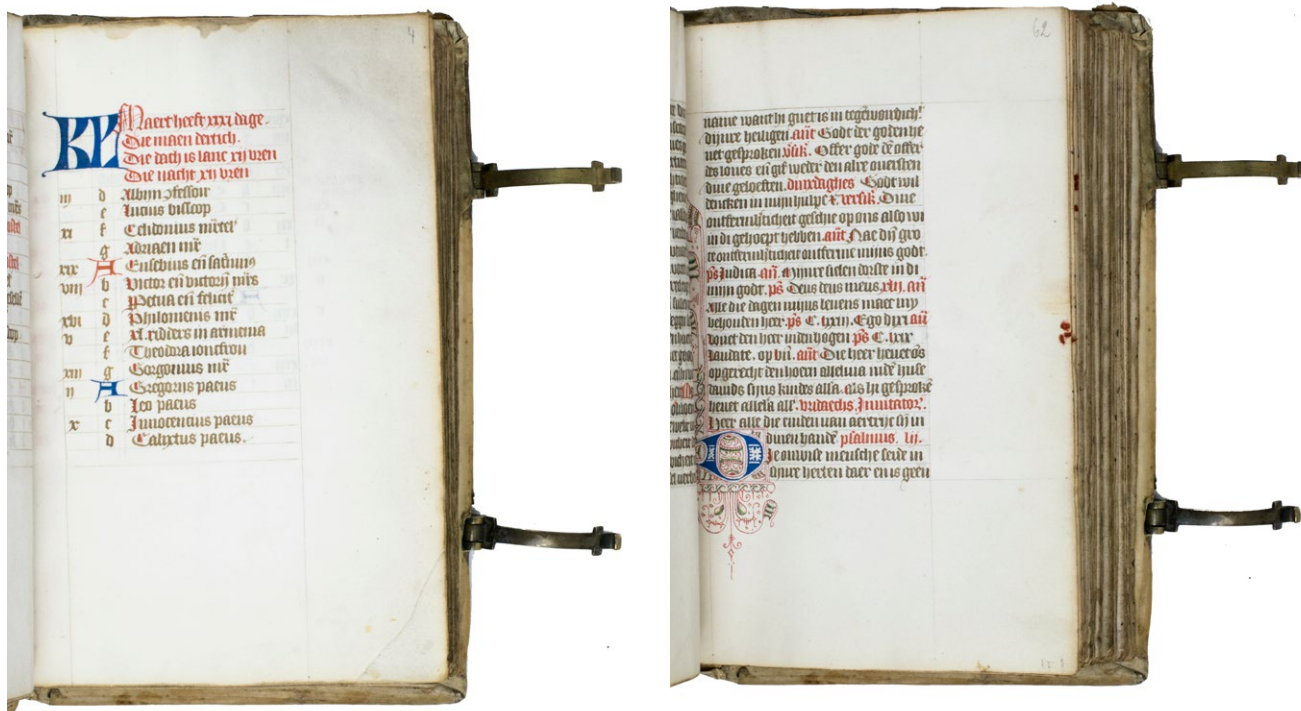 4
KL Maert heeft xxxi dage.
Die maen dertich.
Die dach is lanc xij vren
Die nacht xij vren
iij d Albijn 9fessoir
e Lucius bisscop
xi f Celidonius mr̄tel'
g Adriaen mr̄
xix A Eusebius en̄ satijrnijn
viij b Victor en̄ victorijn mrs
c Petua en̄ felicit'
xvi d Philomenis mr̄
v e xl. ridders in armenia
f Theodora ioncfrou
xiij g Gorgonius mr̄
ij A Gregorijs paeus
b Leo paeus
x c Innocentius paeus
d Calixtus paeus.
62
name want hi guet is in tegenwordich'
dijnre heiligen. an̄t Godt der goden he
uet gesproken v̄sik. Offer gode dē offer
des loues en̄ gif weder den alre ouersten
dine geloeften. dinxdaghes Godt wil
dencken in mijn hulpe. versik. Dine
ontfermh'ticheit geschie op ons also wi
in di gehoept hebben. an̄t Nae dijn gro
te ontfermh'ticheit ontferme mijns godt.
ps̄ Iudica an̄. Mijnre sielen dorste in di
mijn godt. ps̄ Deus deus meus xlij. an̄
Alle die dagen mijns leuens maec my
behouden heer. ps̄ C. lxxij. Ego dixi an̄
louet den heer inden hogen ps̄ C. lxix
laudate. op bn̄. an̄t Die heer heuet ōs
opgerecht den hoern alleluia indē huse
dauids sijns kindes alla. als hi gesprokē
heuet allela all'. vridaechs Inuitator'.
Heer alle die einden van aertrijc sij in
dinen handē psalmus. lij.
Die onwise mensche seide in
sijnre herten daer en is geen